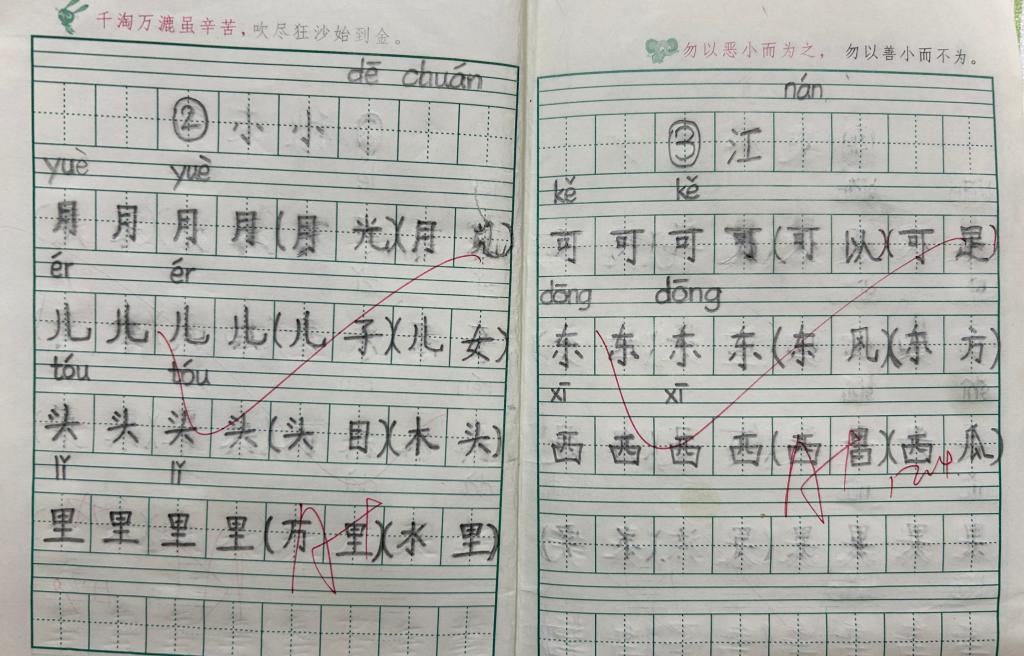 千淘万漉虽辛苦，吹尽狂沙始到金。
dē chuán
② 小 小
yuè yuè
月 月 月 月 (月 光)(月 儿)
ér ér
儿 儿 儿 儿 (儿 子)(儿 女)
tóu tóu
头 头 头 头 (头 目)(木 头)
lǐ lǐ
里 里 里 里 (万 里)(水 里)
勿以恶小而为之，勿以善小而不为。
nán
③ 江
kě kě
可 可 可 可 (可 以)(可 是)
dōng dōng
东 东 东 东 (东 风)(东 方)
xī xī
西 西 西 西 (西 昌)(西 瓜)